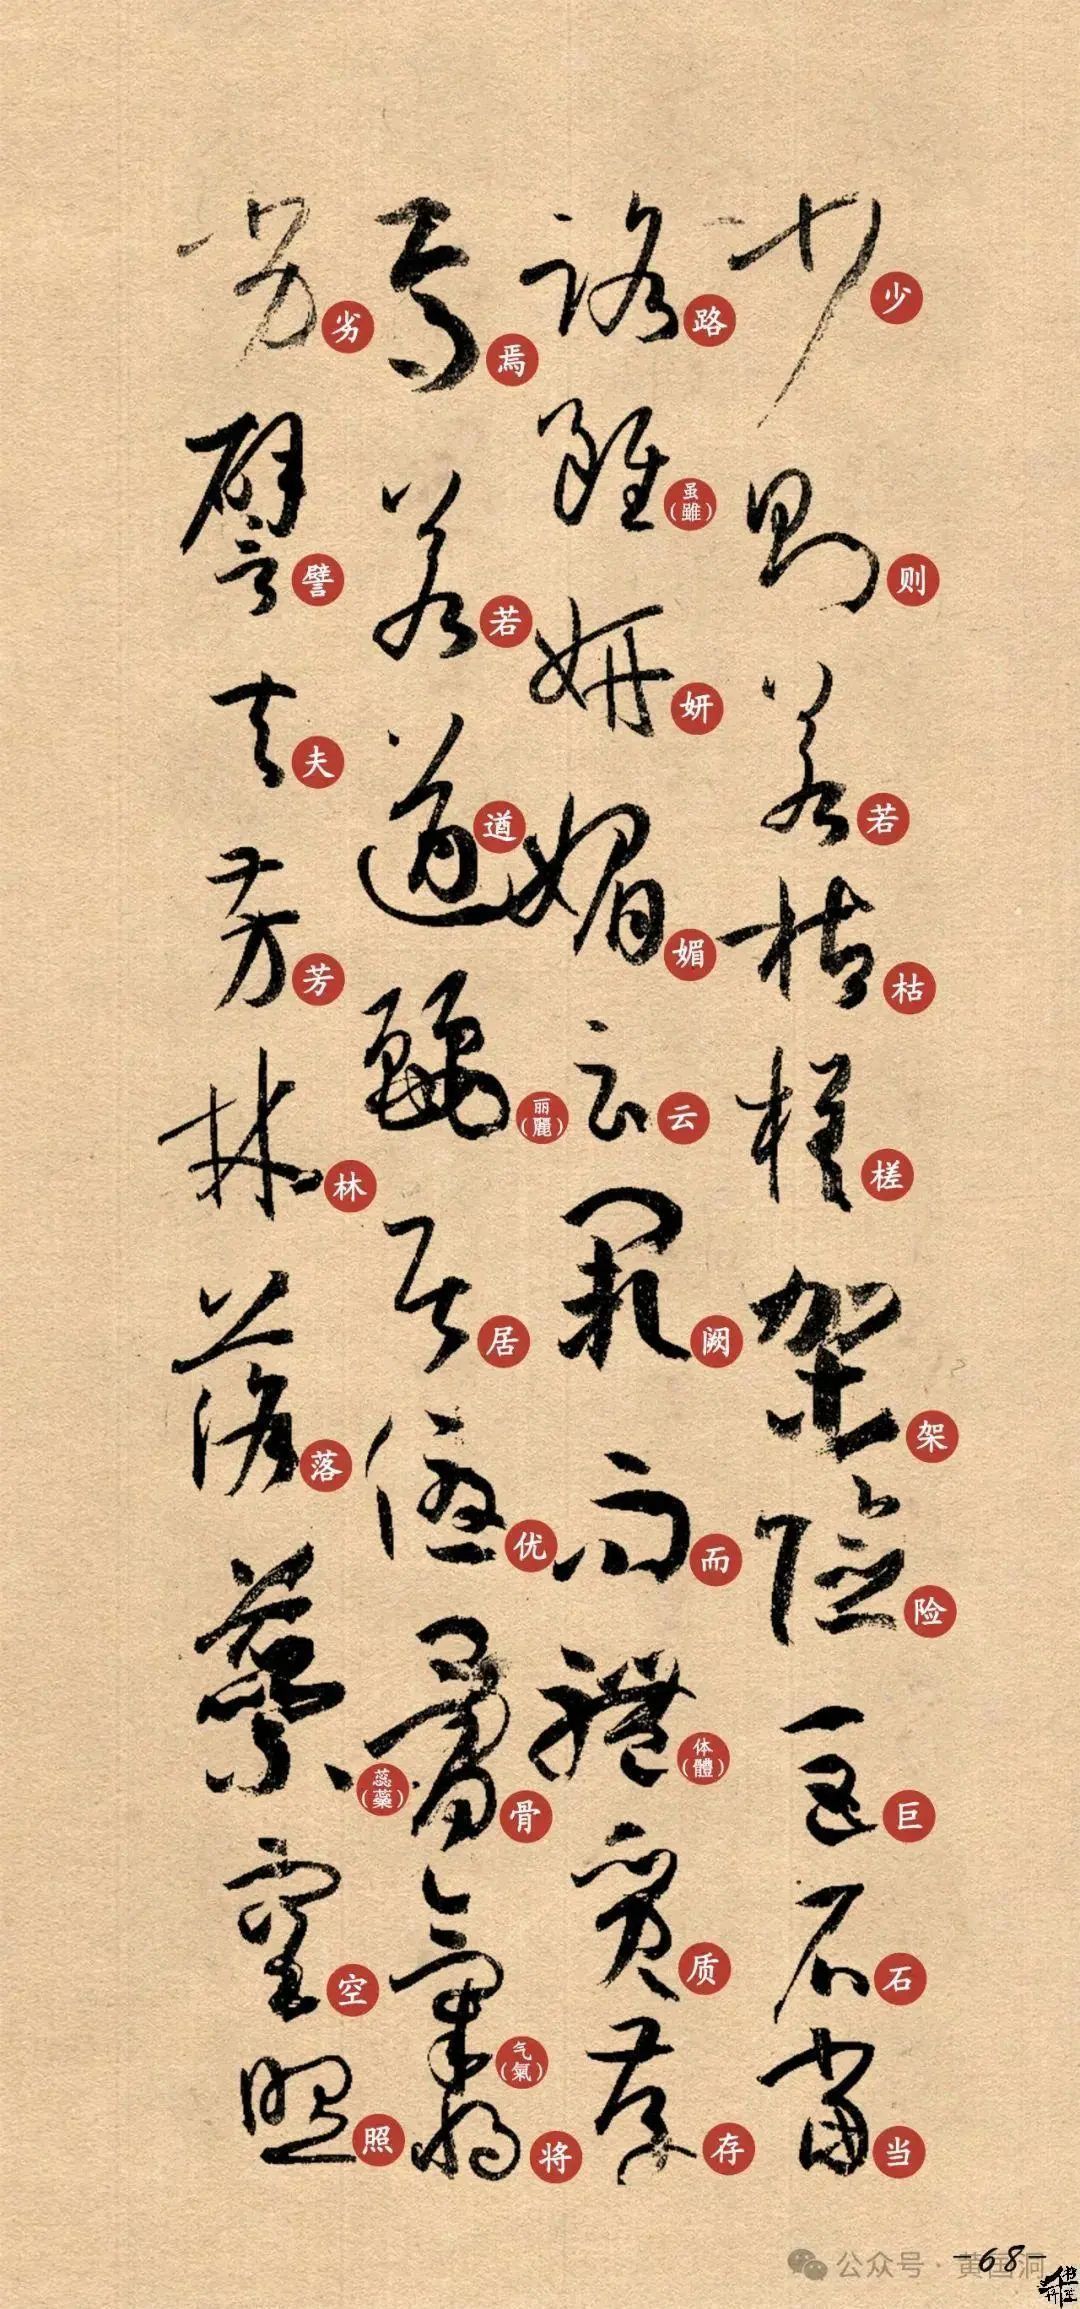 少则若枯槎架险巨石当
路虽(雖)妍媚云阙而体(體)质存
焉若遒丽(麗)居优骨气(氣)将
劣譬夫芳林落蕊(蘂)空照
公众号·黄国洞
-68-